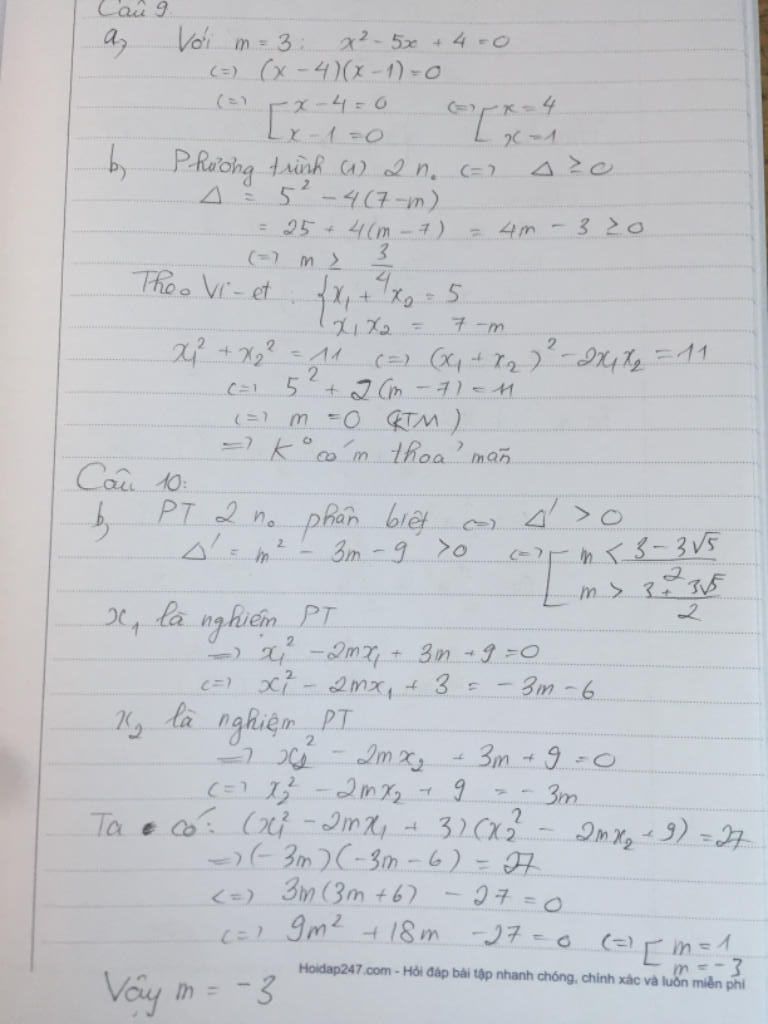 Câu 9.
a, Với m = 3: x² - 5x + 4 = 0
(=) (x - 4)(x - 1) = 0
(=) [x - 4 = 0 (=) [x = 4
x - 1 = 0 x = 1
b, Phương trình (1) 2 n₀ (=) Δ ≥ 0
Δ = 5² - 4(7 - m)
= 25 + 4(m - 7) = 4m - 3 ≥ 0
(=) m ≥ 3/4
Theo Vi-et: {x₁ + x₂ = 5
x₁x₂ = 7 - m
x₁² + x₂² = 11 (=) (x₁ + x₂)² - 2x₁x₂ = 11
(=) 5² + 2(m - 7) = 11
(=) m = 0 (KTM)
=) K° có m thoả mãn
Câu 10:
b, PT 2 n₀ phân biệt (=) Δ' > 0
Δ' = m² - 3m - 9 > 0 (=) [m < (3 - 3√5)/2
m > (3 + 3√5)/2
x₁ là nghiệm PT
=) x₁² - 2mx₁ + 3m + 9 = 0
(=) x₁² - 2mx₁ + 3 = -3m - 6
x₂ là nghiệm PT
=) x₂² - 2mx₂ + 3m + 9 = 0
(=) x₂² - 2mx₂ + 9 = -3m
Ta có: (x₁² - 2mx₁ + 3)(x₂² - 2mx₂ + 9) = 27
=) (-3m)(-3m - 6) = 27
(=) 3m(3m + 6) - 27 = 0
(=) 9m² + 18m - 27 = 0 (=) [m = 1
m = -3
Hoidap247.com - Hỏi đáp bài tập nhanh chóng, chính xác và luôn miễn phí
Vậy m = -3